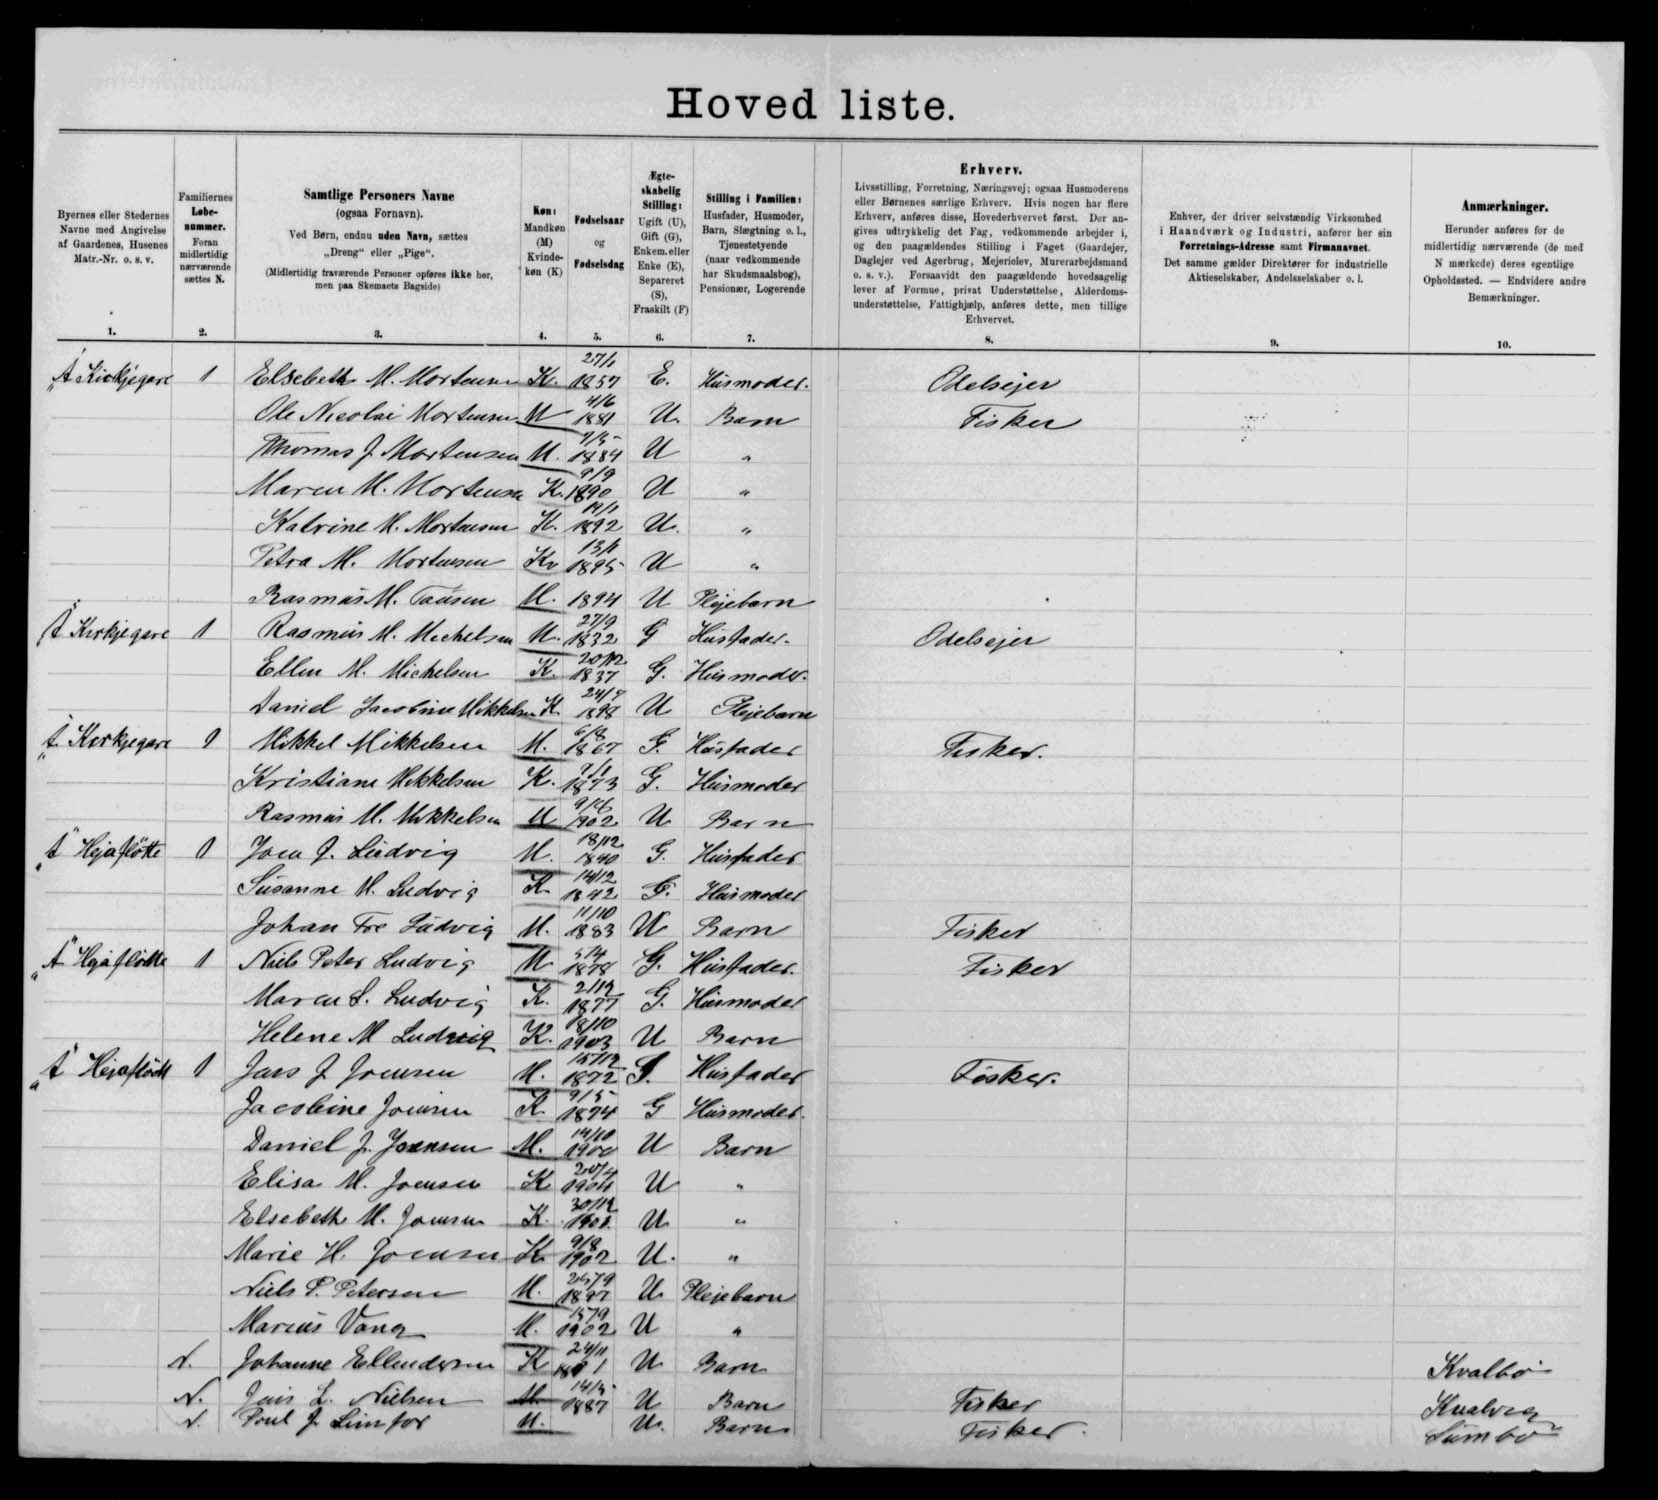 Hoved liste.
Byernes eller Stedernes Navne med Angivelse af Gaardenes, Husenes Matr.-Nr. o. s. v.
1.
Familiernes Løbenummer. Foran midlertidig nærværende sættes N.
2.
Samtlige Personers Navne
(ogsaa Fornavn).
Ved Børn, endnu uden Navn, sættes
„Dreng" eller „Pige".
(Midlertidig fraværende Personer opføres ikke her,
men paa Skemaets Bagside)
3.
Køn:
Mandkøn
(M)
Kvinde-
køn (K)
4.
Fødselsaar
og
Fødselsdag
5.
Ægte-
skabelig
Stilling:
Ugift (U),
Gift (G),
Enkem. eller
Enke (E),
Separeret
(S),
Fraskilt (F)
6.
Stilling i Familien:
Husfader, Husmoder,
Barn, Slægtning o. l.,
Tjenestetyende
(naar vedkommende
har Skudsmaalsbog),
Pensionær, Logerende
7.
Erhverv.
Livsstilling, Forretning, Næringsvej; ogsaa Husmoderens
eller Børnenes særlige Erhverv. Hvis nogen har flere
Erhverv, anføres disse, Hovederhvervet først. Der an-
gives udtrykkelig det Fag, vedkommende arbejder i,
og den paagældendes Stilling i Faget (Gaardejer,
Daglejer ved Agerbrug, Mejerielev, Murerarbejdsmand
o. s. v.). Forsaavidt den paagældende hovedsagelig
lever af Formue, privat Understøttelse, Alderdoms-
understøttelse, Fattighjælp, anføres dette, men tillige
Erhvervet.
8.
Enhver, der driver selvstændig Virksomhed
i Haandværk og Industri, anfører her sin
Forretnings-Adresse samt Firmanavnet.
Det samme gælder Direktører for industrielle
Aktieselskaber, Andelsselskaber o. l.
9.
Anmærkninger.
Herunder anføres for de
midlertidig nærværende (de med
N mærkede) deres egentlige
Opholdssted. — Endvidere andre
Bemærkninger.
10.
Á Kirkjegare 1 Elsebeth M. Mortensen K. 27/1 1857 E. Husmoder. Odelsejer
Ole Nicolai Mortensen M 4/6 1881 U. Barn Fisker
Thomas J Mortensen M. 1884 U "
Maren M. Mortensen K. 9/9 1890 U "
Katrine M. Mortensen K. 1892 U. "
Petra M. Mortensen Kv 1895 U "
Rasmus M. Tausen M. 1894 U Plejebarn
Á Kirkjegare 1 Rasmus M. Michelsen M. 27/9 1832 G Husfader. Odelsejer
Ellen M. Michelsen K. 20/12 1837 G. Husmoder.
Daniel Jacobine Mikkelsen K 1898 U Plejebarn
Á Kirkjegare 1 Mikkel Mikkelsen M. 6/8 1867 G. Husfader Fisker.
Kristiane Mikkelsen K. 1873 G. Husmoder
Rasmus M. Mikkelsen M 1902 U Barn
Á Hejafløtte 1 Joen J. Ludvig M. 18/12 1840 G. Husfader
Susanne M. Ludvig K 14/12 1842 G. Husmoder
Johan Fre Ludvig M. 11/10 1883 U Barn Fisker
Á Hejafløtte 1 Niels Peter Ludvig M 1878 G. Husfader. Fisker
Maren S. Ludvig K. 2/12 1877 G. Husmoder
Helene M Ludvig K. 18/10 1903 U Barn
Á Hejafløtt 1 Jans J Joensen M. 15/12 1872 G. Husfader Fisker.
Jacobine Joensen K. 9/5 1874 G Husmoder.
Daniel J. Joensen M. 14/10 1900 U Barn
Elisa M. Joensen K U "
Elsebeth M. Joensen K. 30/12 U. "
Marie H. Joensen K 9/8 1902 U. "
Niels P. Petersen M. 1897 U. Plejebarn
Marius Vang M. 15/9 1902 U "
N. Johanne Ellendersen K 24/11 U Barn Kvalbø
N. Jens L. Nielsen M. 14/5 1887 U Barn Fisker Kvalvig
N. Poul J. Limfor M. U. Barn Fisker. Sumbø